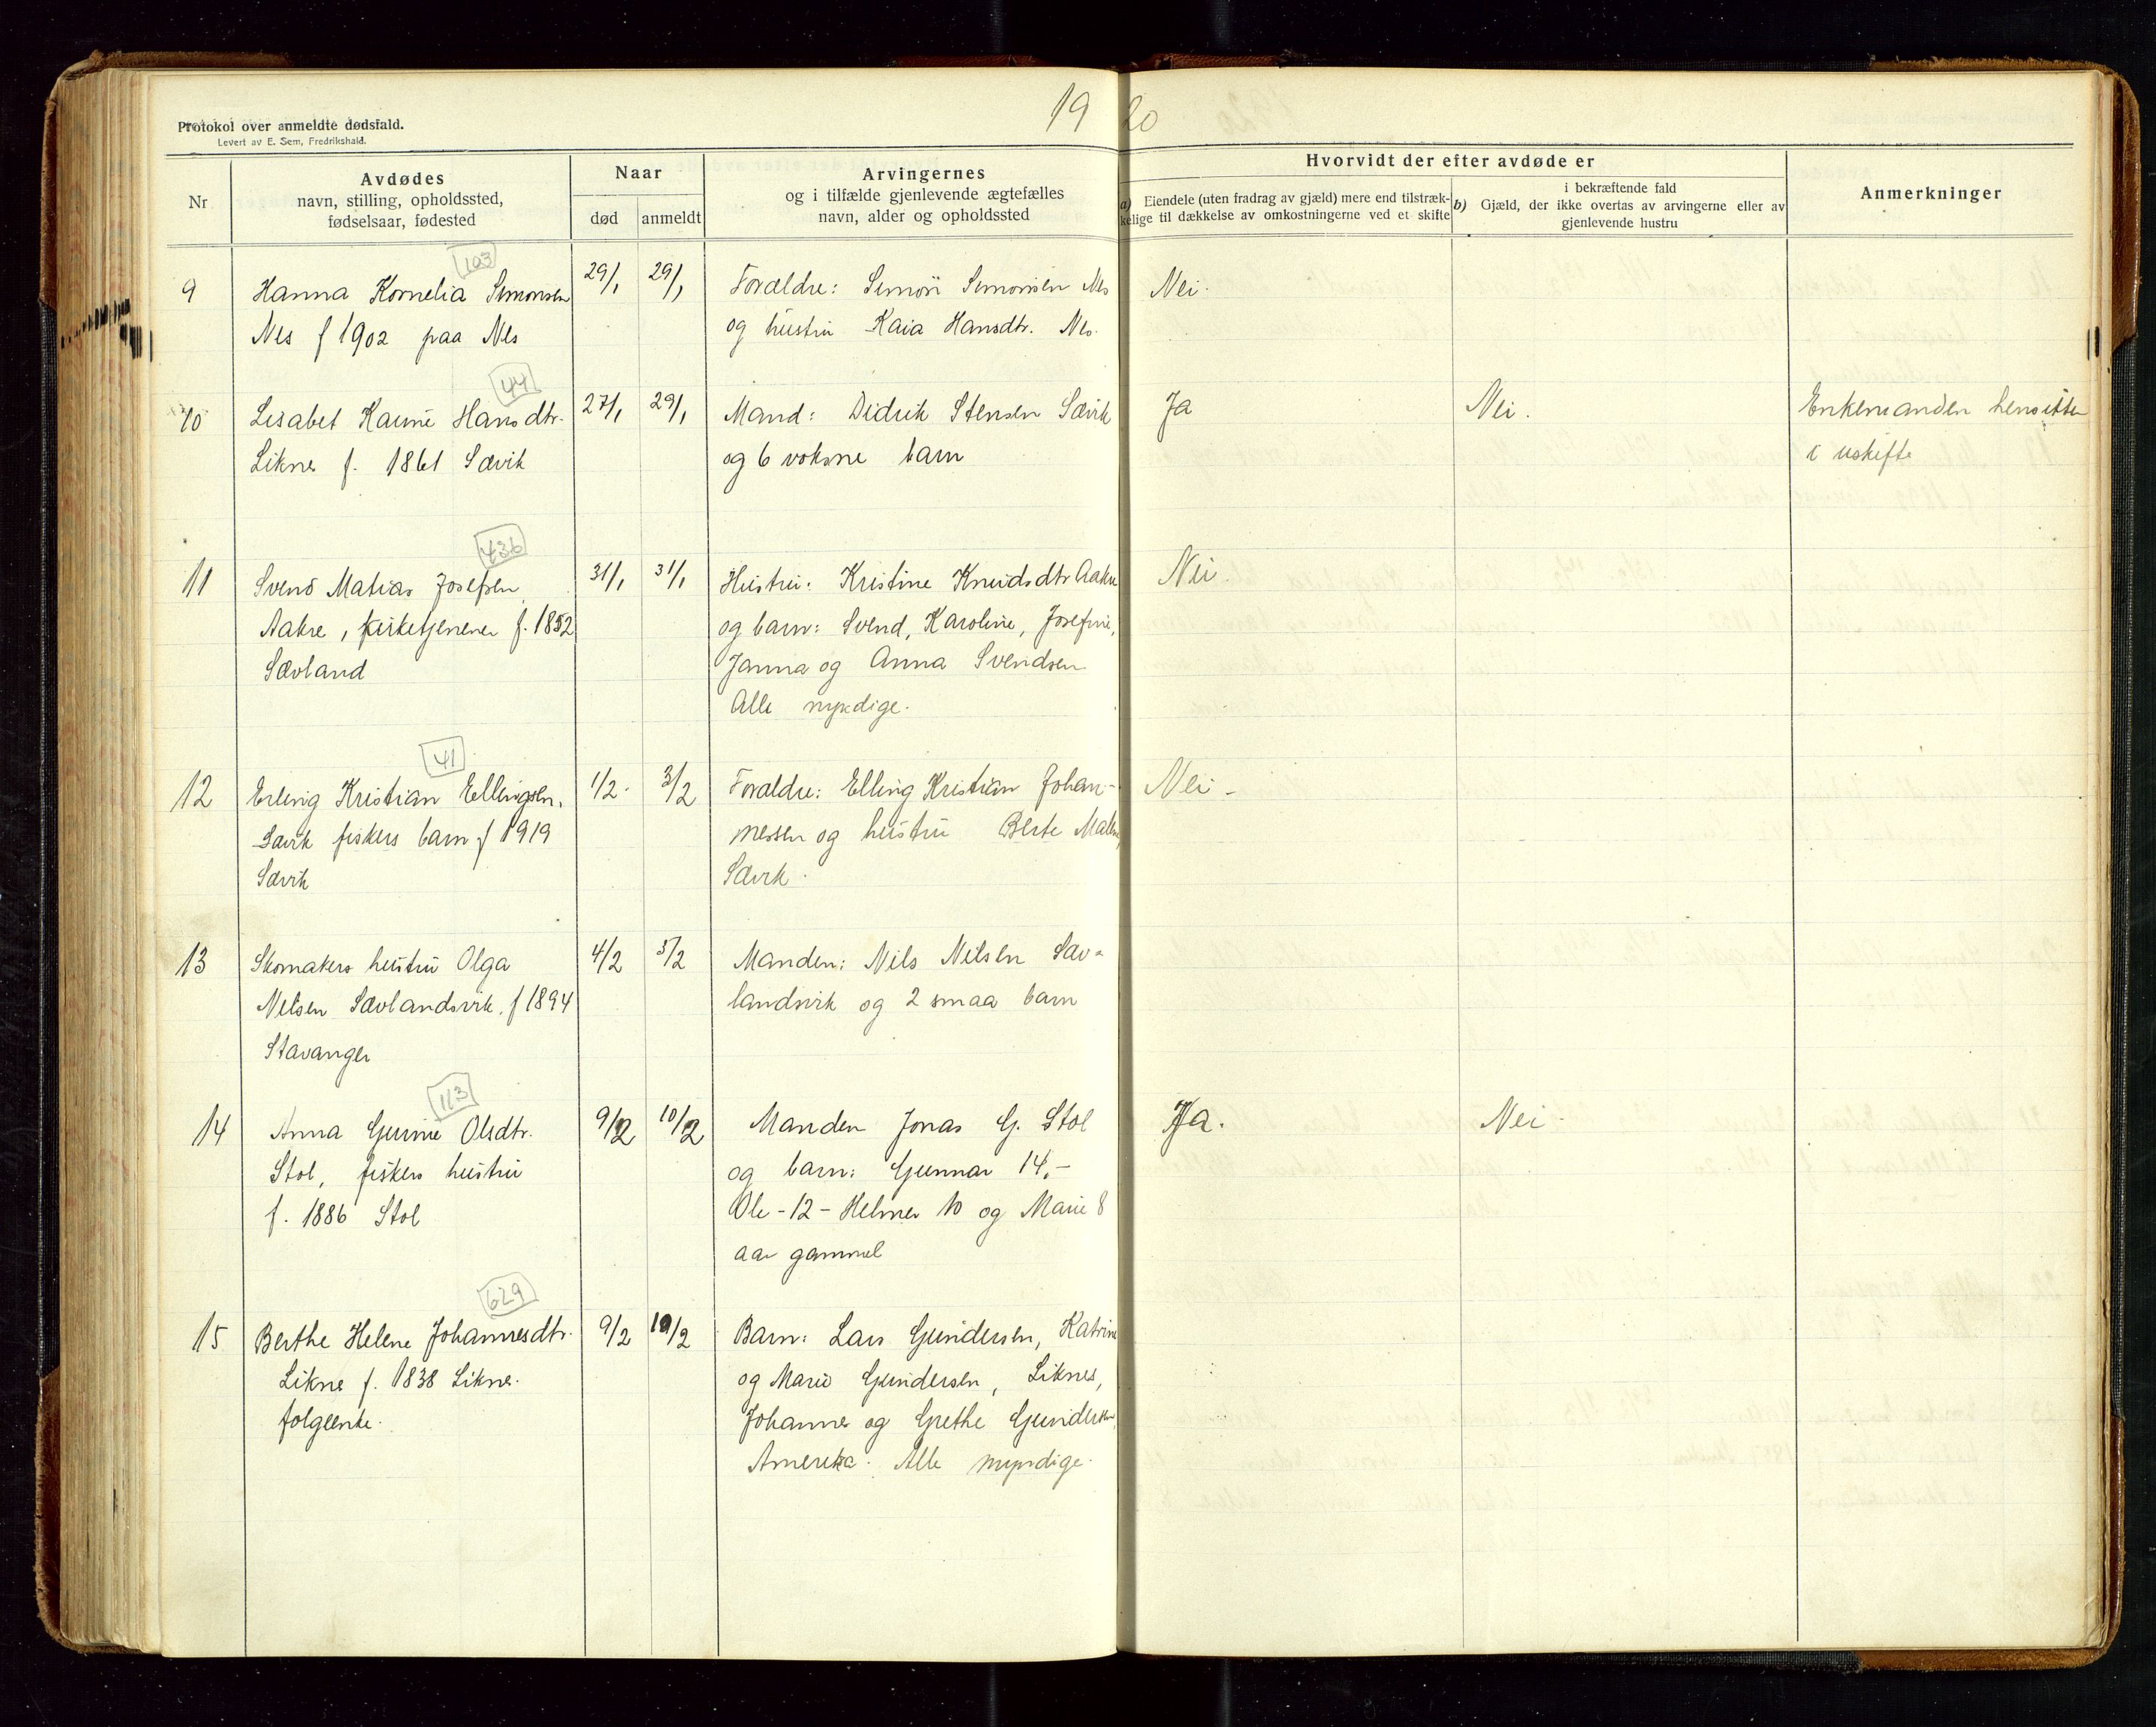 19 20
Protokol over anmeldte dødsfald.
Levert av E. Sem, Fredrikshald.
Nr
Avdødes
navn, stilling, opholdssted,
fødselsaar, fødested
Naar
død
anmeldt
Arvingernes
og i tilfælde gjenlevende ægtefælles
navn, alder og opholdssted
Hvorvidt der efter avdøde er
a) Eiendele (uten fradrag av gjæld) mere end tilstræk-
kelige til dækkelse av omkostningerne ved et skifte
i bekræftende fald
b) Gjæld, der ikke overtas av arvingerne eller av
gjenlevende hustru
Anmerkninger
103
9 Hanna Kornelia Simonsen 29/1 29/1 Forældre: Simon Simonsen Nes Nei.
Nes f 1902 paa Nes og hustru Kaia Hansdtr. Nes.
44
10 Lisabet Karine Hansdtr. 27/1 29/1 Mand: Didrik Stensen Sævik Ja Nei. Enkemanden hensitter
Liknes f. 1861 Sævik og 6 voksne barn i uskifte
436
11 Svend Matias Josefsen 31/1 31/1 Hustru: Kristine Knudsdtr Aakre Nei.
Aakre, kirketjener f. 1852 og barn: Svend, Karoline, Josefine,
Sævland Janna og Anna Svendsen
Alle myndige.
41
12 Erling Kristian Ellingsen, 1/2 3/2 Forældre: Elling Kristian Johan- Nei -
Sævik fiskers barn f 1919 nessen og hustru Berte Malene,
Sævik Sævik.
13 Skomakers hustru Olga 4/2 5/2 Manden: Nils Nilsen Sæv=
Nilsen Sævlandsvik, f 1894 landsvik og 2 smaa barn
Stavanger
113
14 Anna Gurine Olsdtr. 9/2 10/2 Manden Jonas G. Stol Ja. Nei.
Stol, fiskers hustru og barn: Gunnar 14,-
f. 1886 Stol Ole - 12 - Helmer 10 og Marie 8
aar gammel
629
15 Berthe Helene Johannesdtr. 9/2 10/2 Barn: Lars Gundersen, Katrine
Liknes f. 1838 Liknes. og Marie Gundersen, Liknes,
folgeenke. Johannes og Grethe Gundersen
Amerika. Alle myndige.